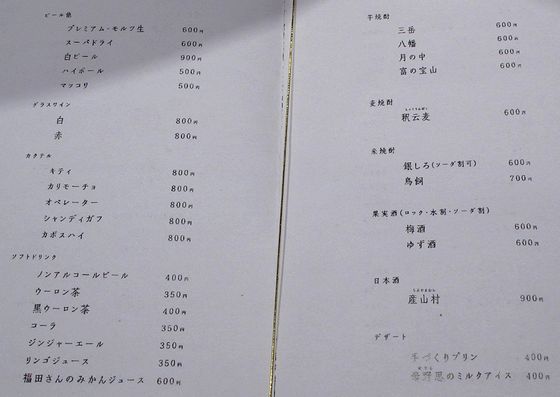 ビール他
プレミアム・モルツ生 600円
スーパドライ 600円
白ビール 900円
ハイボール 500円
マッコリ 500円
グラスワイン
白 800円
赤 800円
カクテル
キティ 800円
カリモーチョ 800円
オペレーター 800円
シャンディガフ 800円
カボスハイ 800円
ソフトドリンク
ノンアルコールビール 400円
ウーロン茶 350円
黒ウーロン茶 400円
コーラ 350円
ジンジャーエール 350円
リンゴジュース 350円
福田さんのみかんジュース 600円
芋焼酎
三岳 600円
八幡 600円
月の中 600円
富の宝山 600円
麦焼酎
釈云麦 600円
米焼酎
銀しろ(ソーダ割可) 600円
鳥飼 700円
果実酒(ロック・水割・ソーダ割)
梅酒 600円
ゆず酒 600円
日本酒
うぶやまむら
産山村 900円
デザート
手づくりプリン 400円
のミルクアイス 400円